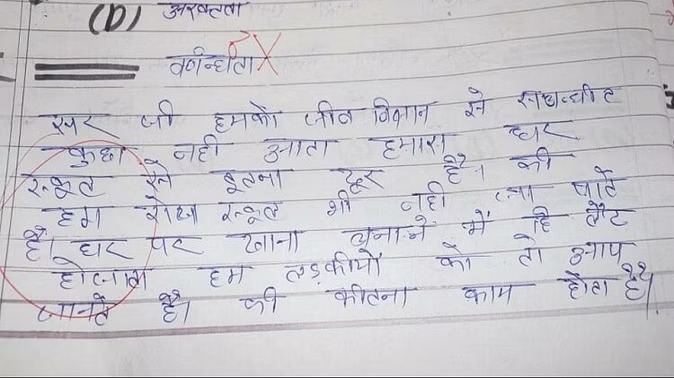 (D) अरक्तता
वर्णान्धता
सर जी हमको जीव विज्ञान से सम्बन्धीत
कुछा नही आता हमारा घर
स्कूल से इतना दूर है। की
हम रोज स्कूल भी नही जा पाते
है। घर पर खाना बनाने में हि लैट
होजाता हम लड़कीयो को तो आप
जानते है। की कीतना काम होता है।